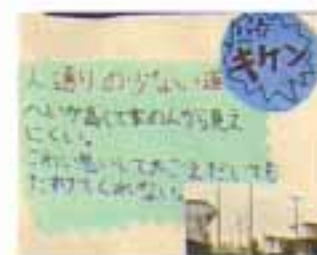 キケン
人通りの少ない道
へいが高くて家の人から見え
にくい。
こわい思いしておこえだしても
たすけてくれない。